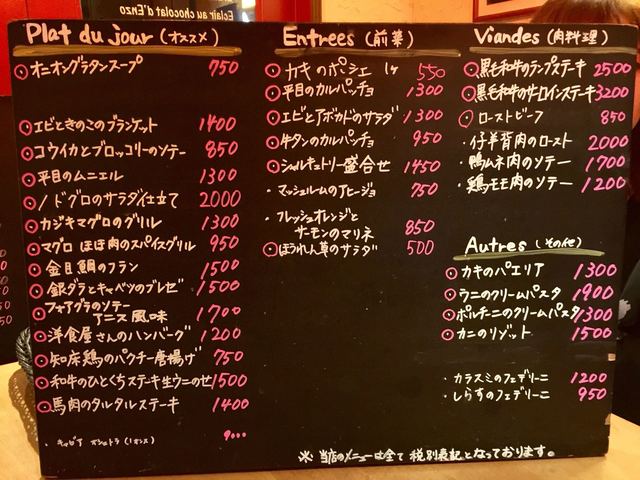 Eclair au chocolat d'Enzo
Plat du jour (オススメ)
オニオングラタンスープ 750
エビときのこのブランケット 1400
コウイカとブロッコリーのソテー 850
平目のムニエル 1300
ノドグロのサラダ仕立て 2000
カジキマグロのグリル 1300
マグロほほ肉のスパイスグリル 950
金目鯛のフラン 1500
銀ダラとキャベツのブレゼ 1500
フォアグラのソテー
アニス風味 1700
洋食屋さんのハンバーグ 1200
知床鶏のパクチー唐揚げ 750
和牛のひとくちステーキ生ウニのせ 1500
馬肉のタルタルステーキ 1400
・キャビア オシェトラ (1オンス) 9000
Entrees (前菜)
カキのポシェ 1ヶ 550
平目のカルパッチョ 1300
エビとアボカドのサラダ 1300
牛タンのカルパッチョ 950
シャルキュトリー盛合せ 1450
・マッシュルームのアヒージョ 750
・フレッシュオレンジと
サーモンのマリネ 850
ほうれん草のサラダ 500
Viandes (肉料理)
黒毛和牛のランプステーキ 2500
黒毛和牛のサーロインステーキ 3200
ローストビーフ 850
・仔羊背肉のロースト 2000
・鴨ムネ肉のソテー 1700
・鶏モモ肉のソテー 1200
Autres (その他)
カキのパエリア 1300
ウニのクリームパスタ 1900
ポルチーニのクリームパスタ 1300
カニのリゾット 1500
・カラスミのフェデリーニ 1200
・しらすのフェデリーニ 950
※ 当店のメニューは全て 税別表記となっております。